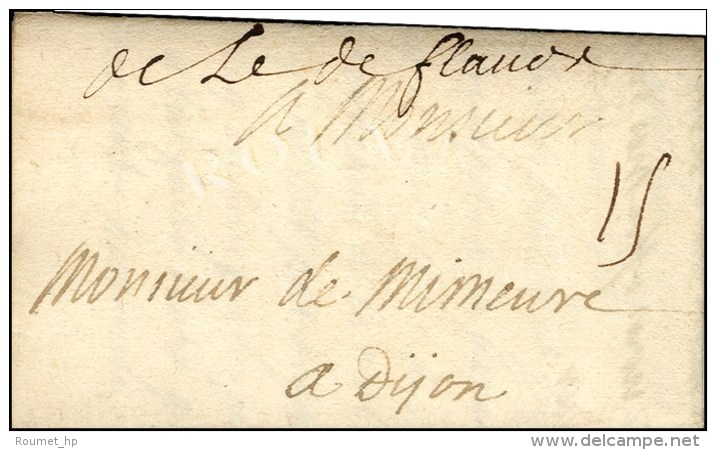 de Le de flandr
A Monsieur
ROUMET
15
Monsieur de Mimeure
a Dijon
Roumet_hp
www.delcampe.net